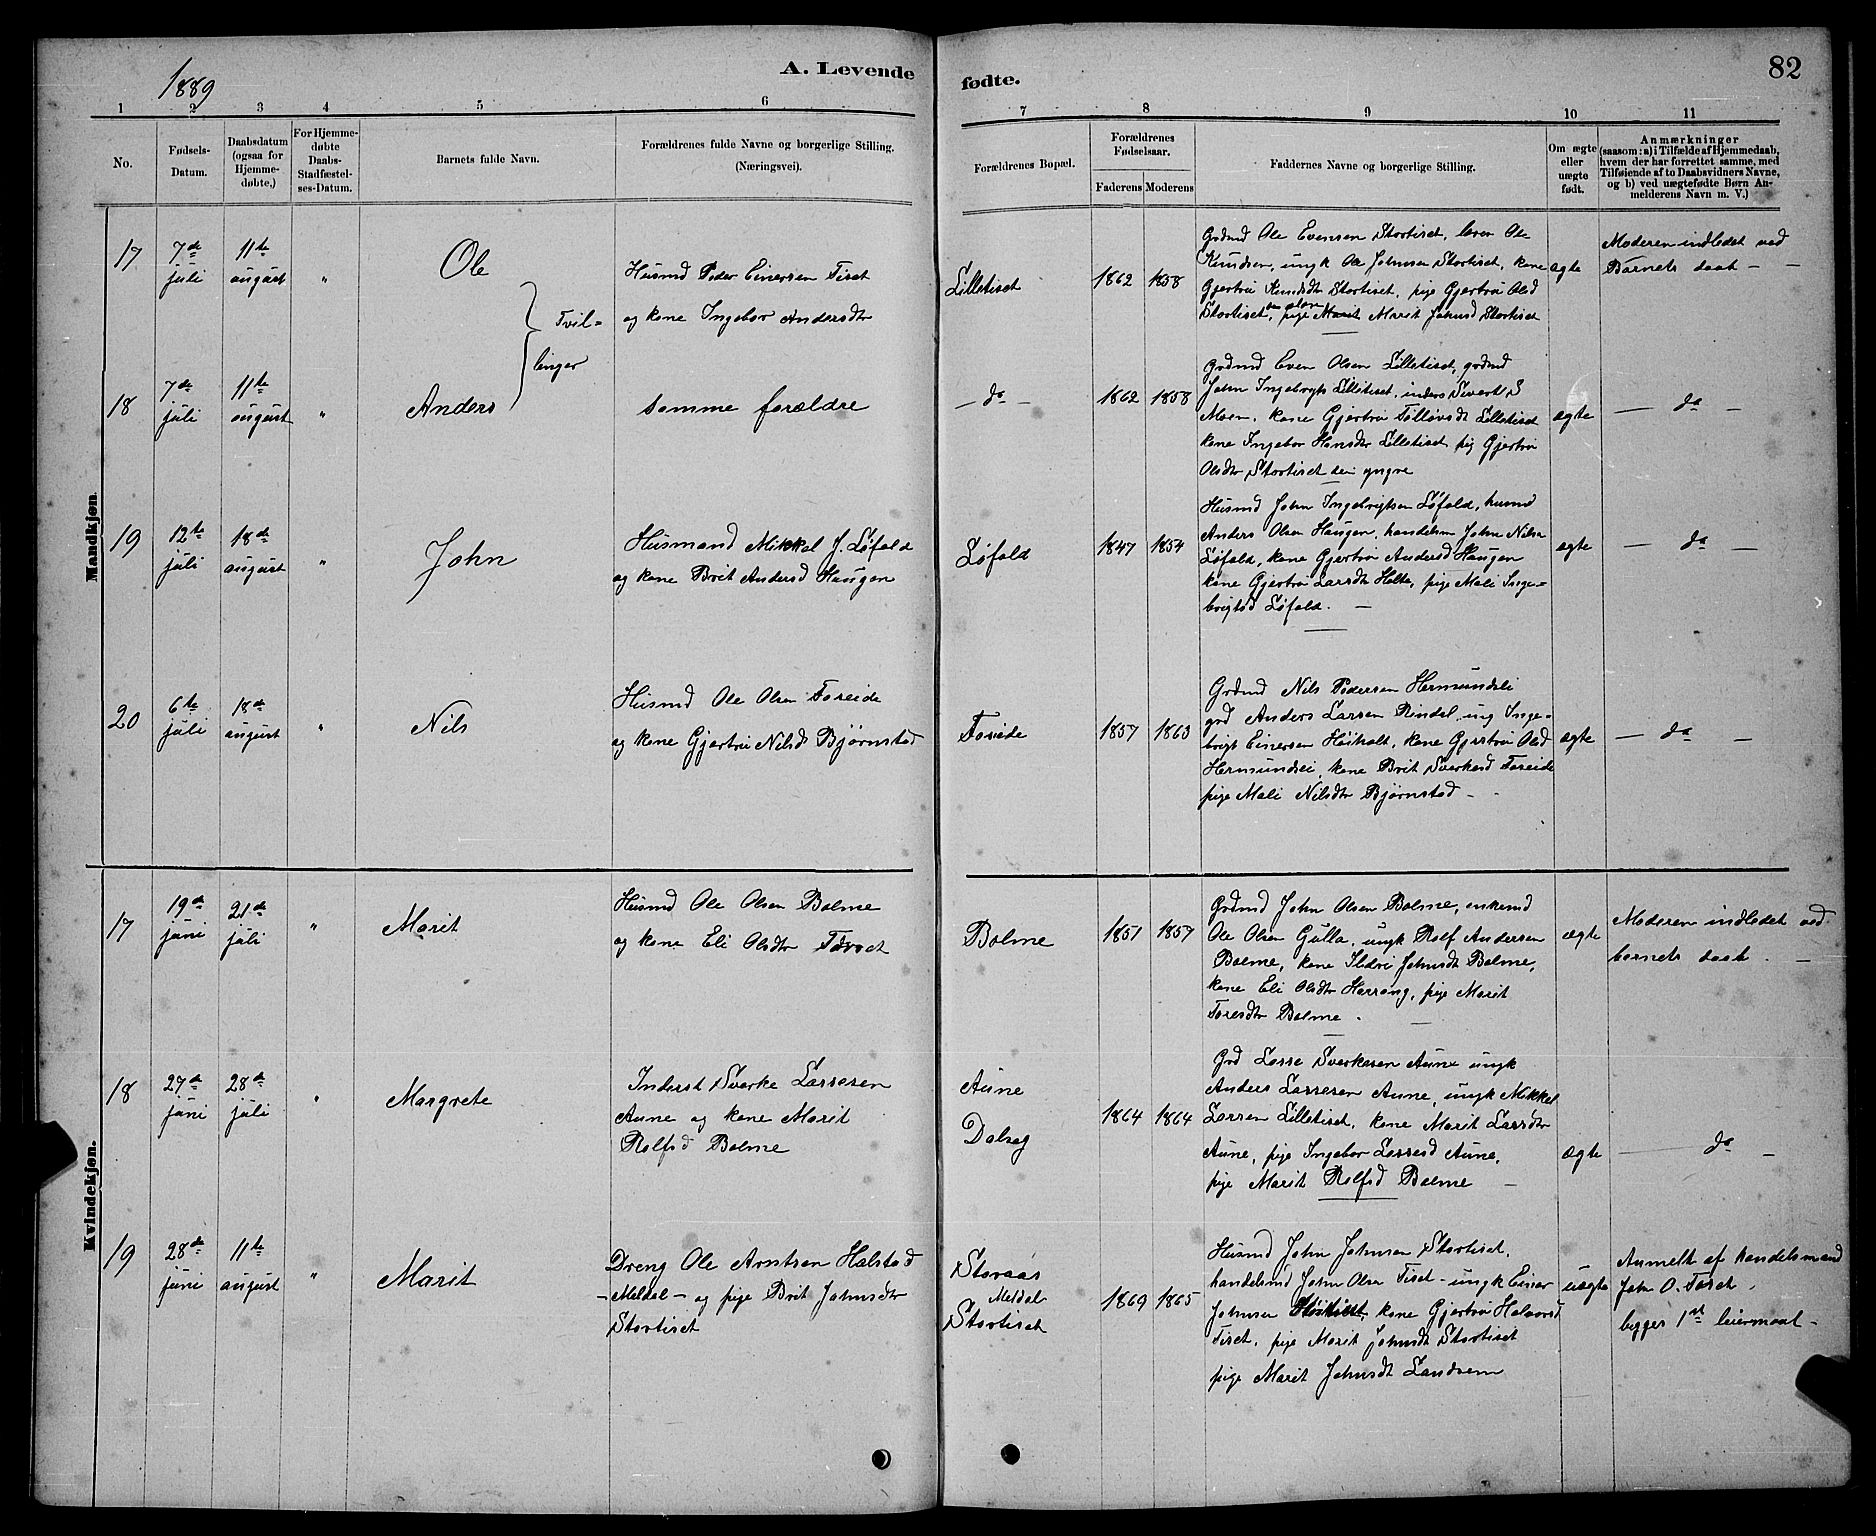 1889
A. Levende
fødte.
82
1 2 3 4 5 6 7 8 9 10 11
No.
Fødsels-
Datum.
Daabsdatum
(ogsaa for
Hjemme-
døbte,)
For Hjemme-
døbte
Daabs-
Stadfæstel-
ses-Datum.
Barnets fulde Navn.
Forældrenes fulde Navne og borgerlige Stilling.
(Næringsvei).
Forældrenes Bopæl.
Forældrenes
Fødselsaar.
Faderens Moderens
Faddernes Navne og borgerlige Stilling.
Om ægte
eller
uægte
født.
Anmærkninger
(saasom: a) i Tilfælde af Hjemmedaab,
hvem der har forrettet samme, med
Tilføiende af to Daabsvidners Navne,
og b) ved uægtefødte Børn An-
melderens Navn m. V.)
Mandkjøn
17
7de
juli
11te
august
"
Ole
Tvil=
linger
Husmd Peder Einersen Tiset
og kone Ingebor Andersdtr
Lilletiset
1862 1858
Grdmd Ole Evensen Stortiset, Ole
Knudsen, ungk Ole Johnsen Stortiset, kone
Gjertrui Knudsdtr Stortiset, pige Gjertrui Olsd
Stortiset, pige Marit Marit Johnsd Stortiset
ægte
Moderen indledet ved
Barnets daab - -
18
7de
juli
11te
august
"
Anders
samme forældre
- do -
1862 1858
Grdmd Even Olsen Lilletiset, grdmd
John Ingebrigts Lilletiset, inders Sivert S
Moen, kone Gjertrui Tølløvsdt Lilletiset
kone Ingebor Hansdtr Lilletiset pig Gjertrui
Olsdtr Stortiset den yngre
ægte
- do -
19
12te
juli
18de
august
"
John
Husmand Mikkel J. Løfald
og kone Brit Andersd Haugen
Løfald
1847 1854
Husmd John Ingebrigtsen Løfald, husmd
Anders Olsen Haugen, handelsm John Nilsen
Løfald, kone Gjertrui Andersd Haugen
kone Gjertrui Larsdtr Holte, pige Mali Inge=
brigtsd Løfald. -
ægte
- do -
20
6te
juli
18de
august
"
Nils
Husmd Ole Olsen Foreide
og kone Gjertrui Nilsd Bjørnstad
Foreide
1857 1863
Grdmd Nils Pedersen Hermundsli
grd Anders Larsen Rindal, ung Inge=
brigt Einersen Høiholt, kone Gjertrui Olsd
Hermundslei, kone Brit Sverkesd Foreide
pige Mali Nilsdtr Bjørnstad -
ægte
- do -
Kvindekjøn.
17
19de
juni
21de
juli
"
Marit
Husmd Ole Olsen Bolme
og kone Eli Olsdtr
Bolme
1851 1857
Grdmd John Olsen Bolme, enkemd
Ole Olsen Gulla, ungk Rolf Andersen
Bolme, kone Sildri Johnsdt Bolme,
kone Eli Olsdtr Harrang, pige Marit
Toresdtr Bolme -
ægte
Moderen indledet ved
barnets daab. -
18
27de
juni
28de
juli
"
Margrete
Inderst Sverke Larsesen
Aune og kone Marit
Rolfsd Bolme
Aune
Dalseg
1864 1864
Grd Lasse Sverkesen Aune ungk
Anders Larsesen Aune, ungk Mikkel
Larsen Lilletiset, kone Marit Larsdtr
Aune, pige Ingebor Larsesd Aune,
pige Marit Rolfsd Bolme -
ægte
- do -
19
28de
juni
11te
august
"
Marit
Dreng Ole Arntsen Halstad
- Meldal - og pige Brit Johnsdtr
Stortiset
Storaas
Meldal
Stortiset
1869 1865
Husmd John Johnsen Stortiset,
handelsmd John Olsen Tiset - ungk Einer
Johnsen Stortiset, kone Gjertrui Halvorsd
Tiset, pige Marit Johnsdt Stortiset
pige Marit Johnsdt Landsem
uægte
Anmelt af handelsmand
John O. Tiset.
begges 1st leiermaal -